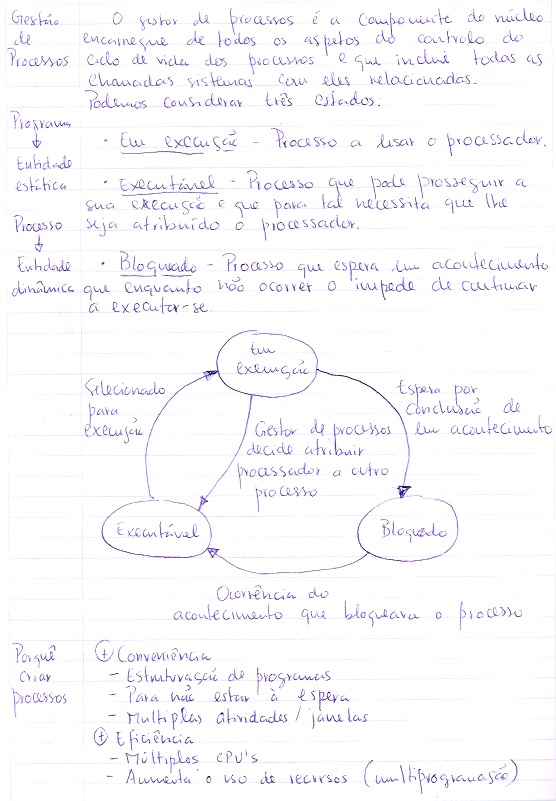 Gestão
de
Processos
O gestor de processos é a componente do núcleo
encarregue de todos os aspetos do controlo do
ciclo de vida dos processos e que inclui todas as
chamadas sistemas com eles relacionadas.
Podemos considerar três estados:
Programa
↓
Entidade
estática
Processo
↓
Entidade
dinâmica
· Em execução - Processo a usar o processador.
· Executável - Processo que pode prosseguir a
sua execução e que para tal necessita que lhe
seja atribuído o processador.
· Bloqueado - Processo que espera um acontecimento
que enquanto não ocorrer o impede de continuar
a executar-se.
Em
execução
Selecionado
para
execução
Gestor de processos
decide atribuir
processador a outro
processo
Espera por
conclusão de
um acontecimento
Executável
Bloqueado
Ocorrência do
acontecimento que bloqueava o processo
Porquê
criar
processos
+ Conveniência
- Estruturação de programas
- Para não estar à espera
- Multiplas atividades / janelas
+ Eficiência
- Múltiplos CPU's
- Aumenta o uso de recursos (multiprogramação)